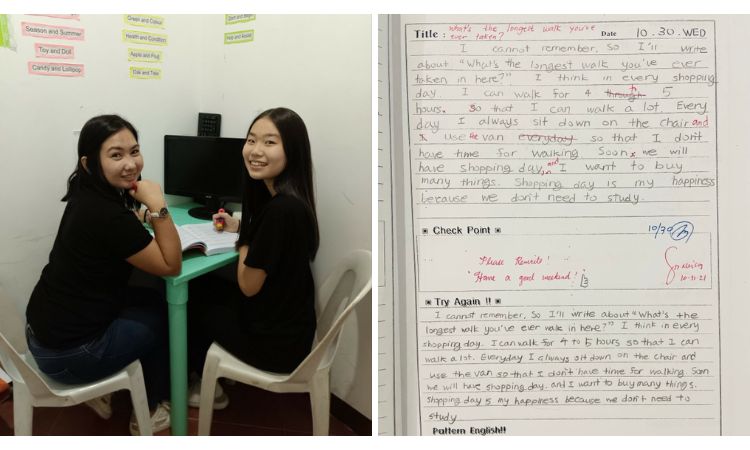 Season and Summer
Toy and Doll
Candy and Lollipop
Green and Colour
Health and Condition
Apple and Fruit
Cold and Tale
Sort and Begin
Help and Assist
Title : What's the longest walk you've ever taken?
Date 10.30.WED
I cannot remember, So I'll write
about "What's the longest walk you've ever
taken in here?" I think in every shopping
day. I can walk for 4 through to 5
hours. So that I can walk a lot. Every
day I always sit down on the chair and
I use the van everyday so that I don't
have time for walking. Soon, we will
have shopping day, and I want to buy
many things. Shopping day is my happiness
because we don't need to study.
Check Point
10/30
Please Rewrite!
Have a good weekend!
10-31-21
Try Again !!
I cannot remember, So I'll write about "What's the
longest walk you've ever walk in here?" I think in every
shopping day. I can walk for 4 to 5 hours so that I can
walk a lot. Everyday I always sit down on the chair and
use the van so that I don't have time for walking. Soon
we will have shopping day. and I want to buy many things.
Shopping day is my happiness because we don't need to
study
Pattern English!!